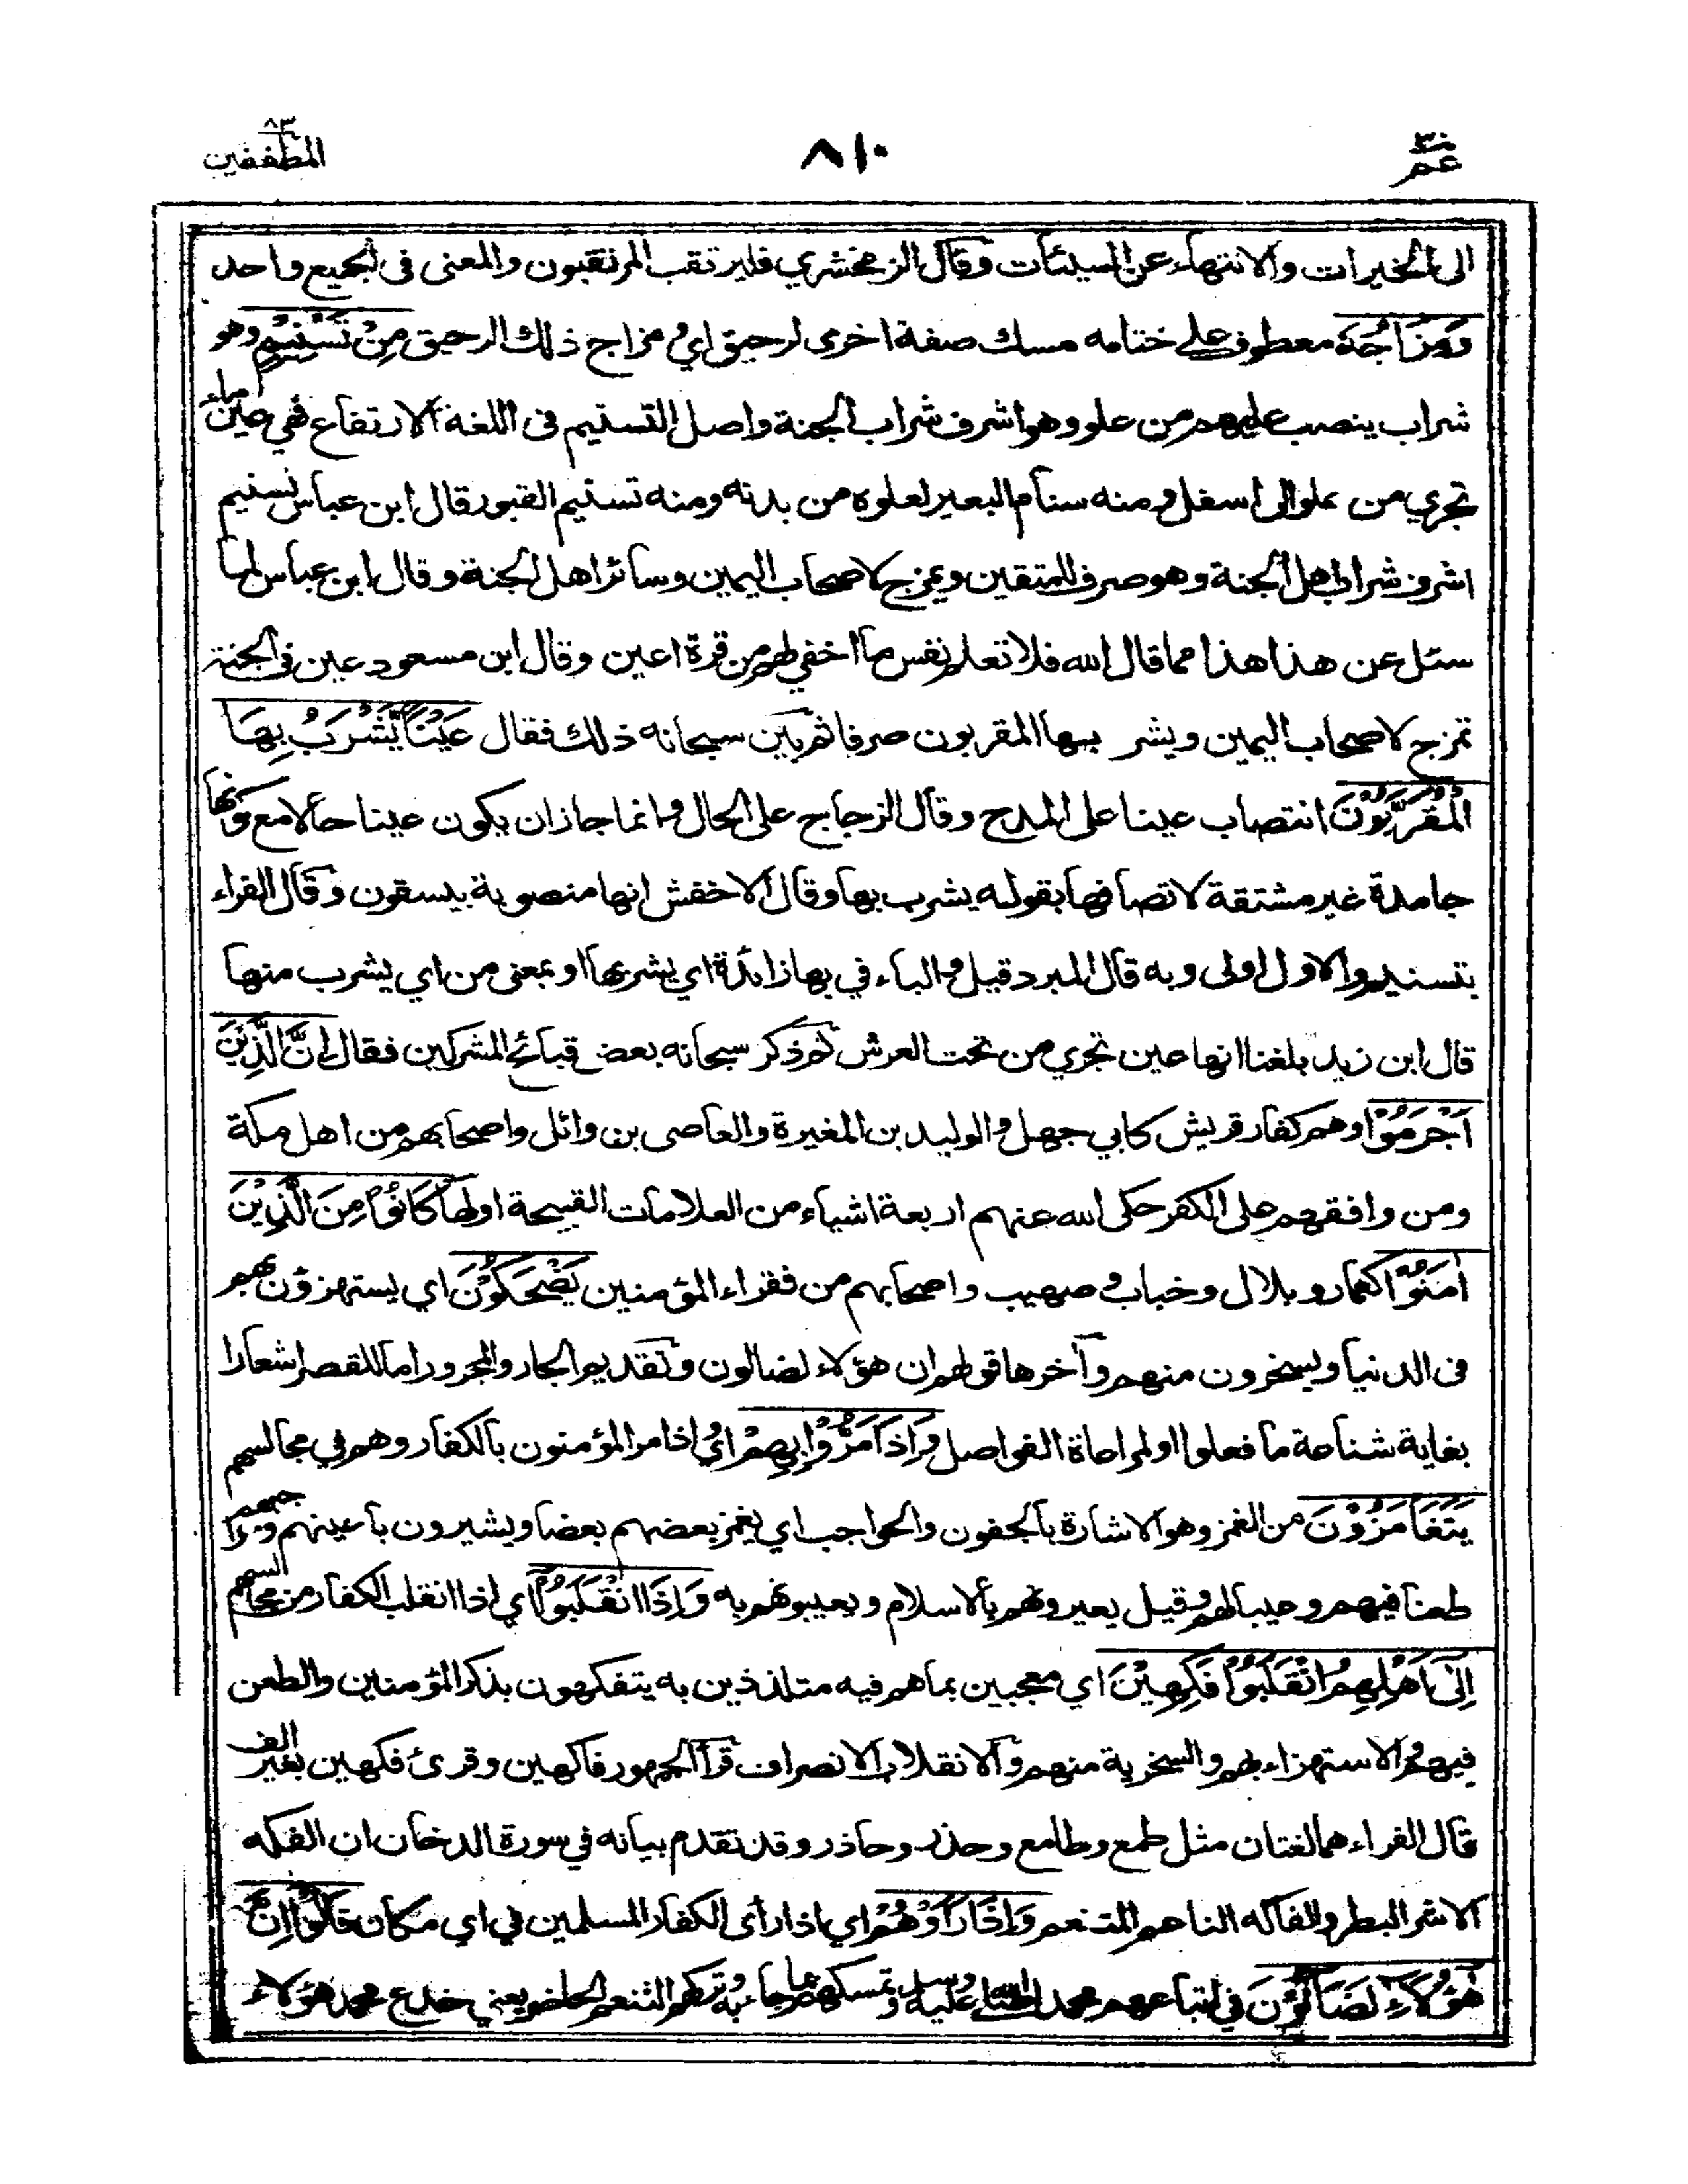 عم ٣٠
٨١٠
المطففين ٨٣
الى الخيرات والانتهاء عن السيئات وقال الزمخشري فليرتقب المرتقبون والمعنى فى الجميع واحد
وَمِزَاجُهٗ معطوف على ختامه مسك صفة اخرى لرحيق اي ومزاج ذلك الرحيق مِنْ تَسْنِيْمٍ وهو
شراب ينصب عليهم من علو وهو اشرف شراب الجنة واصل التسنيم فى اللغة الارتفاع فهي عين ماء
تجري من علو الى اسفل ومنه سنام البعير لعلوه من بدنه ومنه تسنيم القبور قال ابن عباس تسنيم
اشرف شراب اهل الجنة وهو صرف للمتقين ويمزج لاصحاب اليمين وسائر اهل الجنة وقال ابن عباس لما
سئل عن هذا هذا مما قال الله فلا تعلم نفس ما اخفي لهم من قرة اعين وقال ابن مسعود عين فى الجنة
تمزج لاصحاب اليمين ويشر بها المقربون صرفا ثم بين سبحانه ذلك فقال عَيْنًا يَّشْرَبُ بِهَا
الْمُقَرَّبُوْنَ انتصاب عينا على المدح وقال الزجاج على الحال وانما جاز ان يكون عينا حالا مع كونها
جامدة غير مشتقة لاتصافها بقوله يشرب بها وقال الاخفش انها منصوبة بيسقون وقال الفراء
بتسنيم والاول اولى وبه قال المبرد قيل والباء في بها زائدة اي يشربها او بمعنى من اي يشرب منها
قال ابن زيد بلغنا انها عين تجري من تحت العرش ثم ذكر سبحانه بعض قبائح المشركين فقال اِنَّ الَّذِيْنَ
اَجْرَمُوْا وهم كفار قريش كابي جهل والوليد بن المغيرة والعاصى بن وائل واصحابهم من اهل مكة
ومن وافقهم على الكفر حكى الله عنهم اربعة اشياء من العلامات القبيحة اولها كَانُوْا مِنَ الَّذِيْنَ
اٰمَنُوْا كعمار وبلال وخباب وصهيب واصحابهم من فقراء المؤمنين يَضْحَكُوْنَ اي يستهزؤن بهم
فى الدنيا ويسخرون منهم وآخرها قولهم ان هؤلاء لضالون وتقديم الجار والمجرور اما للقصر اشعارا
بغاية شناعة ما فعلوا او لمراعاة الفواصل وَاِذَا مَرُّوْا بِهِمْ اي اذا مر المؤمنون بالكفار وهم في مجالسهم
يَتَغَامَزُوْنَ من الغمز وهو الاشارة بالجفون والحواجب اي يغمز بعضهم بعضا ويشيرون باعينهم وحواجبهم
طعنا فيهم وعيبا لهم وقيل يعيرونهم بالاسلام ويعيبونهم به وَاِذَا انْقَلَبُوْا اي اذا انقلب الكفار من مجالسهم
اِلٰٓى اَهْلِهِمُ انْقَلَبُوْا فَكِهِيْنَ اي معجبين بما هم فيه متلذذين به يتفكهون بذكر المؤمنين والطعن
فيهم والاستهزاء بهم والسخرية منهم والانقلاب الانصراف قرأ الجمهور فاكهين وقرئ فكهين بغير الف
قال الفراء هما لغتان مثل طمع وطامع وحذر وحاذر وقد تقدم بيانه في سورة الدخان ان الفكه
الاشر البطر والفاكه الناعم المتنعم وَاِذَا رَاَوْهُمْ اي اذا رأى الكفار المسلمين في اي مكان قَالُوْٓا اِنَّ
هٰٓؤُلَاۤءِ لَضَاۤلُّوْنَ في اتباعهم محمدا صلى الله عليه وسلم وتمسكهم بما جاء به وتركهم التنعم الحاضر يعني خدع محمد هؤلاء